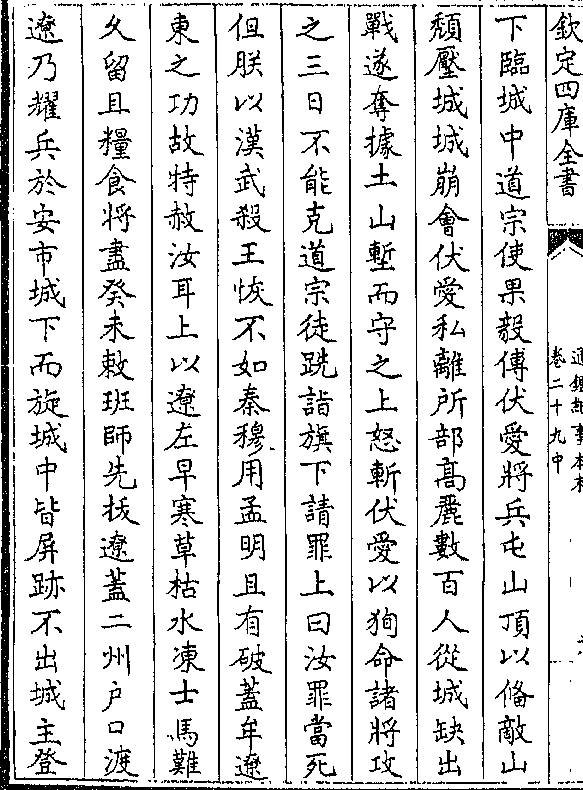 欽定四庫全書
通鑑紀事本末
卷二十九中
下臨城中道宗使果毅傅伏愛將兵屯山頂以備敵山
頹壓城城崩會伏愛私離所部髙麗數百人從城缺出
戰遂奪據土山塹而守之上怒斬伏愛以狥命諸將攻
之三日不能克道宗徒跣詣旗下請罪上曰汝罪當死
但朕以漢武殺王恢不如秦穆用孟明且有破蓋牟遼
東之功故特赦汝耳上以遼左早寒草枯水凍士馬難
乆留且糧食將盡癸未敕班師先拔遼蓋二州户口渡
遼乃耀兵於安市城下而旋城中皆屏跡不出城主登